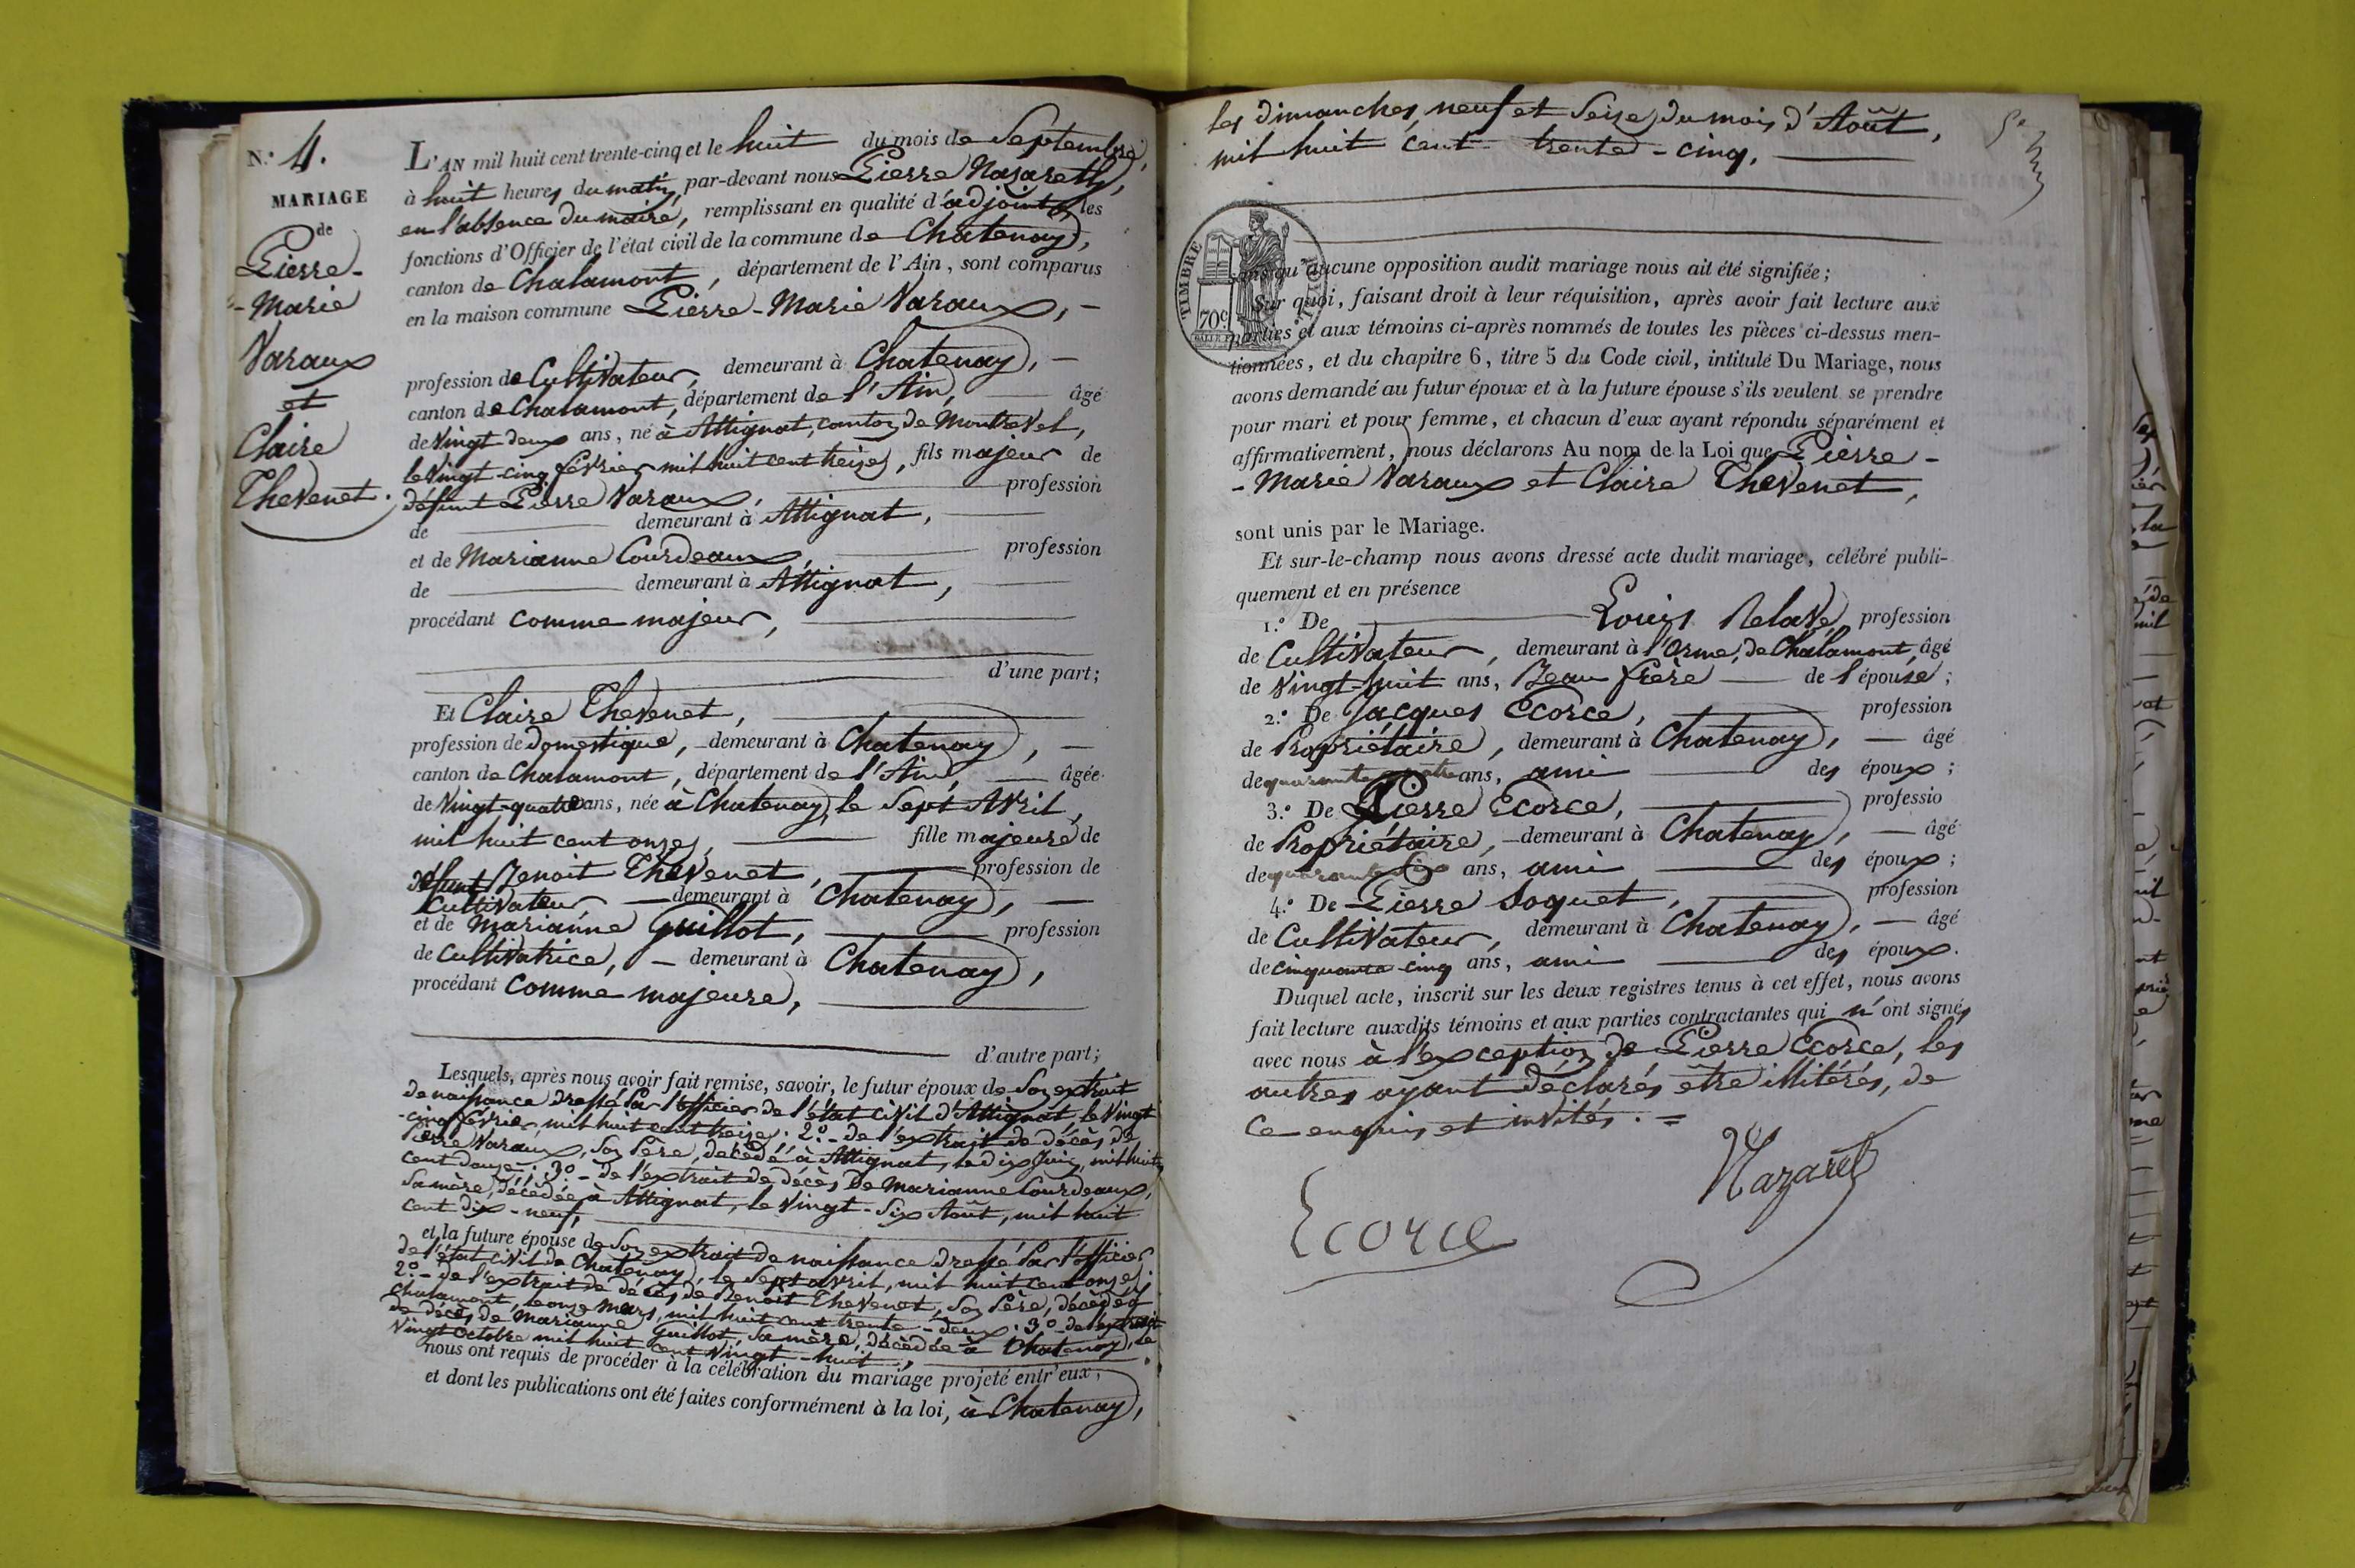 N.° 4.
MARIAGE
de
Pierre-
-Marie
Varaux
et
Claire
Thevenet.
L'AN mil huit cent trente-cinq et le huit du mois de Septembre,
à huit heures du matin, par-devant nous Pierre Nazareth,
en l'absence du maire, remplissant en qualité d'adjoint, les
fonctions d'Officier de l'état civil de la commune de Chatenay,
canton de Chalamont, département de l'Ain, sont comparus
en la maison commune Pierre-Marie Varaux, -
profession de Cultivateur, demeurant à Chatenay, -
canton de Chalamont, département de l'Ain, âgé
de Vingt deux ans, né à Attignat, canton de Montrevel,
le Vingt-cinq février mil huit cent treize, fils majeur de
défunt Pierre Varaux, profession
de demeurant à Attignat,
et de Marianne Courdeaux, profession
de demeurant à Attignat,
procédant comme majeur,
d'une part;
Et Claire Thevenet,
profession de domestique, demeurant à Chatenay, -
canton de Chalamont, département de l'Ain, âgée
de Vingt-quatre ans, née à Chatenay, le Sept Avril,
mil huit cent onze, fille majeure de
défunt Benoit Thevenet, profession de
Cultivateur demeurant à Chatenay, -
et de Marianne Guillot, profession
de Cultivatrice, - demeurant à Chatenay,
procédant comme majeure,
d'autre part;
Lesquels, après nous avoir fait remise, savoir, le futur époux de Son extrait
de naissance dressé Par l'officier de l'état civil d'Attignat, le Vingt
-cinq février mil huit cent treize; 2.° - de l'extrait de décès de
Pierre Varaux, Son Père, décédé à Attignat, le dix Juin, mil huit
cent douze; 3.° - de l'extrait de décès de Marianne Courdeaux,
Sa mère, décédée à Attignat, le Vingt-Six Août, mil huit
cent dix-neuf,
et la future épouse de Son extrait de naissance dressé Par l'officier
de l'état civil de Chatenay, le Sept avril, mil huit cent onze;
2.° - de l'extrait de décès de Benoit Thevenet, Son Père, décédé à
Chalamont, le onze Mars, mil huit cent trente-deux; 3.° - de l'extrait
de décès de Marianne Guillot, Sa mère, décédée à Chatenay, le
Vingt Octobre mil huit cent Vingt-huit,
nous ont requis de procéder à la célébration du mariage projeté entr'eux,
et dont les publications ont été faites conformément à la loi, à Chatenay,
les dimanches, neuf et Seize, du mois d'Août,
mil huit cent trente-cinq,
TIMBRE ROYAL
70c
sans qu'aucune opposition audit mariage nous ait été signifiée;
Sur quoi, faisant droit à leur réquisition, après avoir fait lecture aux
parties et aux témoins ci-après nommés de toutes les pièces ci-dessus men-
tionnées, et du chapitre 6, titre 5 du Code civil, intitulé Du Mariage, nous
avons demandé au futur époux et à la future épouse s'ils veulent se prendre
pour mari et pour femme, et chacun d'eux ayant répondu séparément et
affirmativement, nous déclarons Au nom de la Loi que Pierre-
-Marie Varaux et Claire Thevenet,
sont unis par le Mariage.
Et sur-le-champ nous avons dressé acte dudit mariage, célébré publi-
quement et en présence
1.° De Louis Relave, profession
de Cultivateur, demeurant à l'Orme, de Chalamont, âgé
de Vingt-huit ans, Beau frère de l'épouse;
2.° De Jacques Ecorce, profession
de Propriétaire, demeurant à Chatenay, - âgé
de quarante quatre ans, ami des époux;
3.° De Pierre Ecorce, professio
de Propriétaire, demeurant à Chatenay, - âgé
de quarante Six ans, ami des époux;
4.° De Pierre Soquet, profession
de Cultivateur, demeurant à Chatenay, - âgé
de cinquante cinq ans, ami des époux.
Duquel acte, inscrit sur les deux registres tenus à cet effet, nous avons
fait lecture auxdits témoins et aux parties contractantes qui n'ont signé,
avec nous à l'exception de Pierre Ecorce, les
autres ayant déclarés être illitérés, de
ce enquis et invités. =
Nazareth
Ecorce